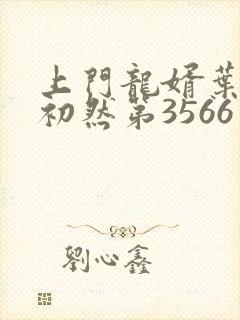 上門龍婿葉
初然第3566
劉心鑫